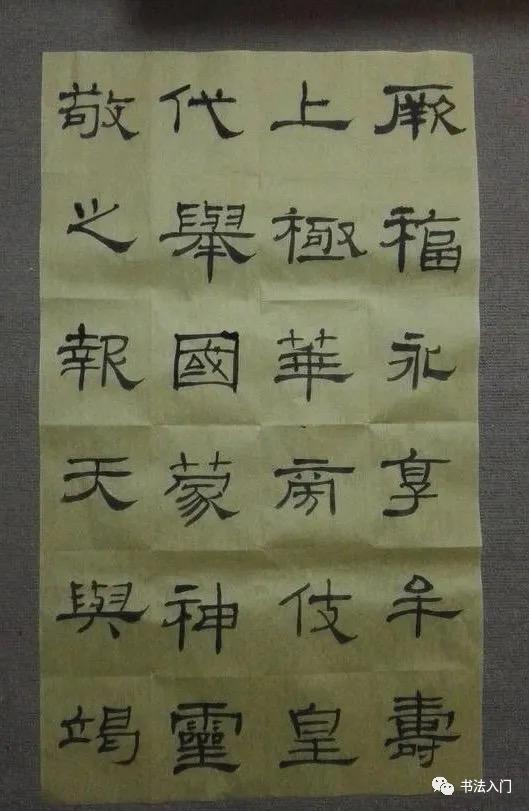 厥福永享牟壽
上極華旁伎皇
代舉國蒙神靈
敬之報天與竭
书法入门